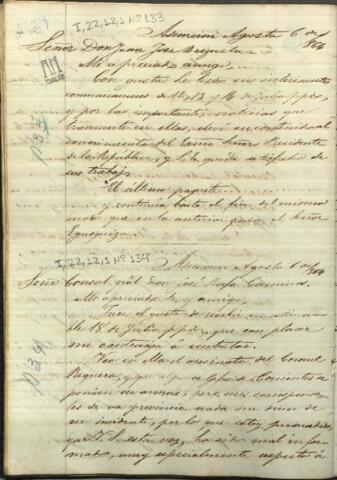 I,22,12,1 Nº 133
Asuncion Agosto 6 de 1864
Señor Don Juan José Brizuela
Mi apreciado amigo,
Con gusto he leido sus interesantes
comunicaciones de 12, 13 y 14 de Julio ppdo,
y por las importantes noticias que
transmite en ellas, elevé en
conocimiento del Exmo Señor Presidente
de la República, y S. E. queda satisfecho de
sus trabajos.
El último paquete
y continúa hasta el fin del mismo
modo que en la anterior para el Señor
Egusquiza.
I,22,12,1 Nº 134
Asuncion Agosto 6 de 1864
Señor Consul gral Don José Rufo Caminos.
Mi apreciado Sr y amigo,
Tuve el gusto de recibir su estima
ble 18 de Julio ppdo, que con placer
me contraigo á contestar.
Veo en el asesinato del Coronel
Reguera, y que
ponian en armas; pero mis corresponsa
les de esa provincia nada me dicen de
ese incidente, por lo que estoy persuadido
que V. S. esta vez, ha sido mal infor
mado, muy especialmente respecto á